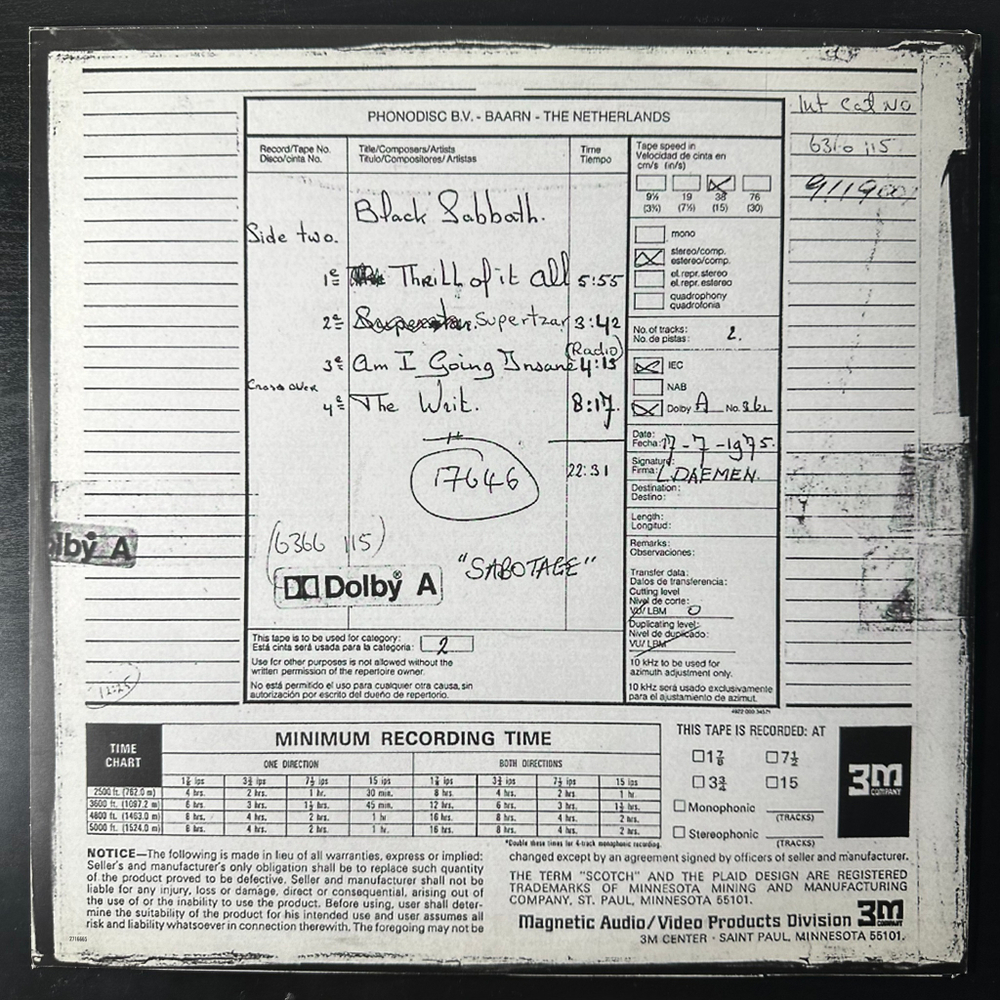 Int Cat No
PHONODISC B.V. - BAARN - THE NETHERLANDS
6310 115
9119001
Record/Tape No.
Disco/cinta No.
Title/Composers/Artists
Titulo/Compositores/Artistas
Time
Tiempo
Black Sabbath.
Side two.
1e Thrill of it all 5:55
2e Supertzar 3:42
3e Am I Going Insane (Radio) 4:15
Cross over
4e The Writ. 8:17.
22:31
17646
(6366 115)
"SABOTAGE"
Dolby® A
lby® A
Tape speed in
Velocidad de cinta en
cm/s (in/s)
9½ 19 38 76
(3¾) (7½) (15) (30)
mono
stereo/comp.
estereo/comp.
el.repr. stereo
el.repr. estereo
quadrophony
quadrofonia
No. of tracks: 2.
No. de pistas:
IEC
NAB
Dolby A No. 361
Date:
Fecha: 17-7-1975.
Signature:
Firma: L DAEMEN.
Destination:
Destino:
Length:
Longitud:
Remarks:
Observaciones:
Transfer data:
Datos de transferencia:
Cutting level
Nivel de corte:
VU/ LBM 0
Duplicating level:
Nivel de duplicado:
VU/ LBM
10 kHz to be used for
azimuth adjustment only.
10 kHz será usado exclusivamente
para el ajustamiento de azimut.
4922 000 34571
This tape is to be used for category: 2
Está cinta será usada para la categoria:
Use for other purposes is not allowed without the
written permission of the repertoire owner.
No está permitido el uso para cualquier otra causa, sin
autorización por escrito del dueño de repertorio.
12:25
TIME
CHART
MINIMUM RECORDING TIME
ONE DIRECTION BOTH DIRECTIONS
1⅞ ips 3¾ ips 7½ ips 15 ips 1⅞ ips 3¾ ips 7½ ips 15 ips
2500 ft. (762.0 m) 4 hrs. 2 hrs. 1 hr. 30 min. 8 hrs. 4 hrs. 2 hrs. 1 hr.
3600 ft. (1097.2 m) 6 hrs. 3 hrs. 1½ hrs. 45 min. 12 hrs. 6 hrs. 3 hrs. 1½ hrs.
4800 ft. (1463.0 m) 8 hrs. 4 hrs. 2 hrs. 1 hr 16 hrs. 8 hrs. 4 hrs. 2 hrs.
5000 ft. (1524.0 m) 8 hrs. 4 hrs. 2 hrs. 1 hr. 16 hrs. 8 hrs. 4 hrs. 2 hrs.
*Double these times for 4-track monophonic recording.
THIS TAPE IS RECORDED: AT
1⅞ 7½
3¾ 15
Monophonic
(TRACKS)
Stereophonic
(TRACKS)
3M
COMPANY
NOTICE—The following is made in lieu of all warranties, express or implied:
Seller's and manufacturer's only obligation shall be to replace such quantity
of the product proved to be defective. Seller and manufacturer shall not be
liable for any injury, loss or damage, direct or consequential, arising out of
the use of or the inability to use the product. Before using, user shall deter-
mine the suitability of the product for his intended use and user assumes all
risk and liability whatsoever in connection therewith. The foregoing may not be
changed except by an agreement signed by officers of seller and manufacturer.
THE TERM "SCOTCH" AND THE PLAID DESIGN ARE REGISTERED
TRADEMARKS OF MINNESOTA MINING AND MANUFACTURING
COMPANY, ST. PAUL, MINNESOTA 55101.
Magnetic Audio/Video Products Division 3M
COMPANY
3M CENTER · SAINT PAUL, MINNESOTA 55101.